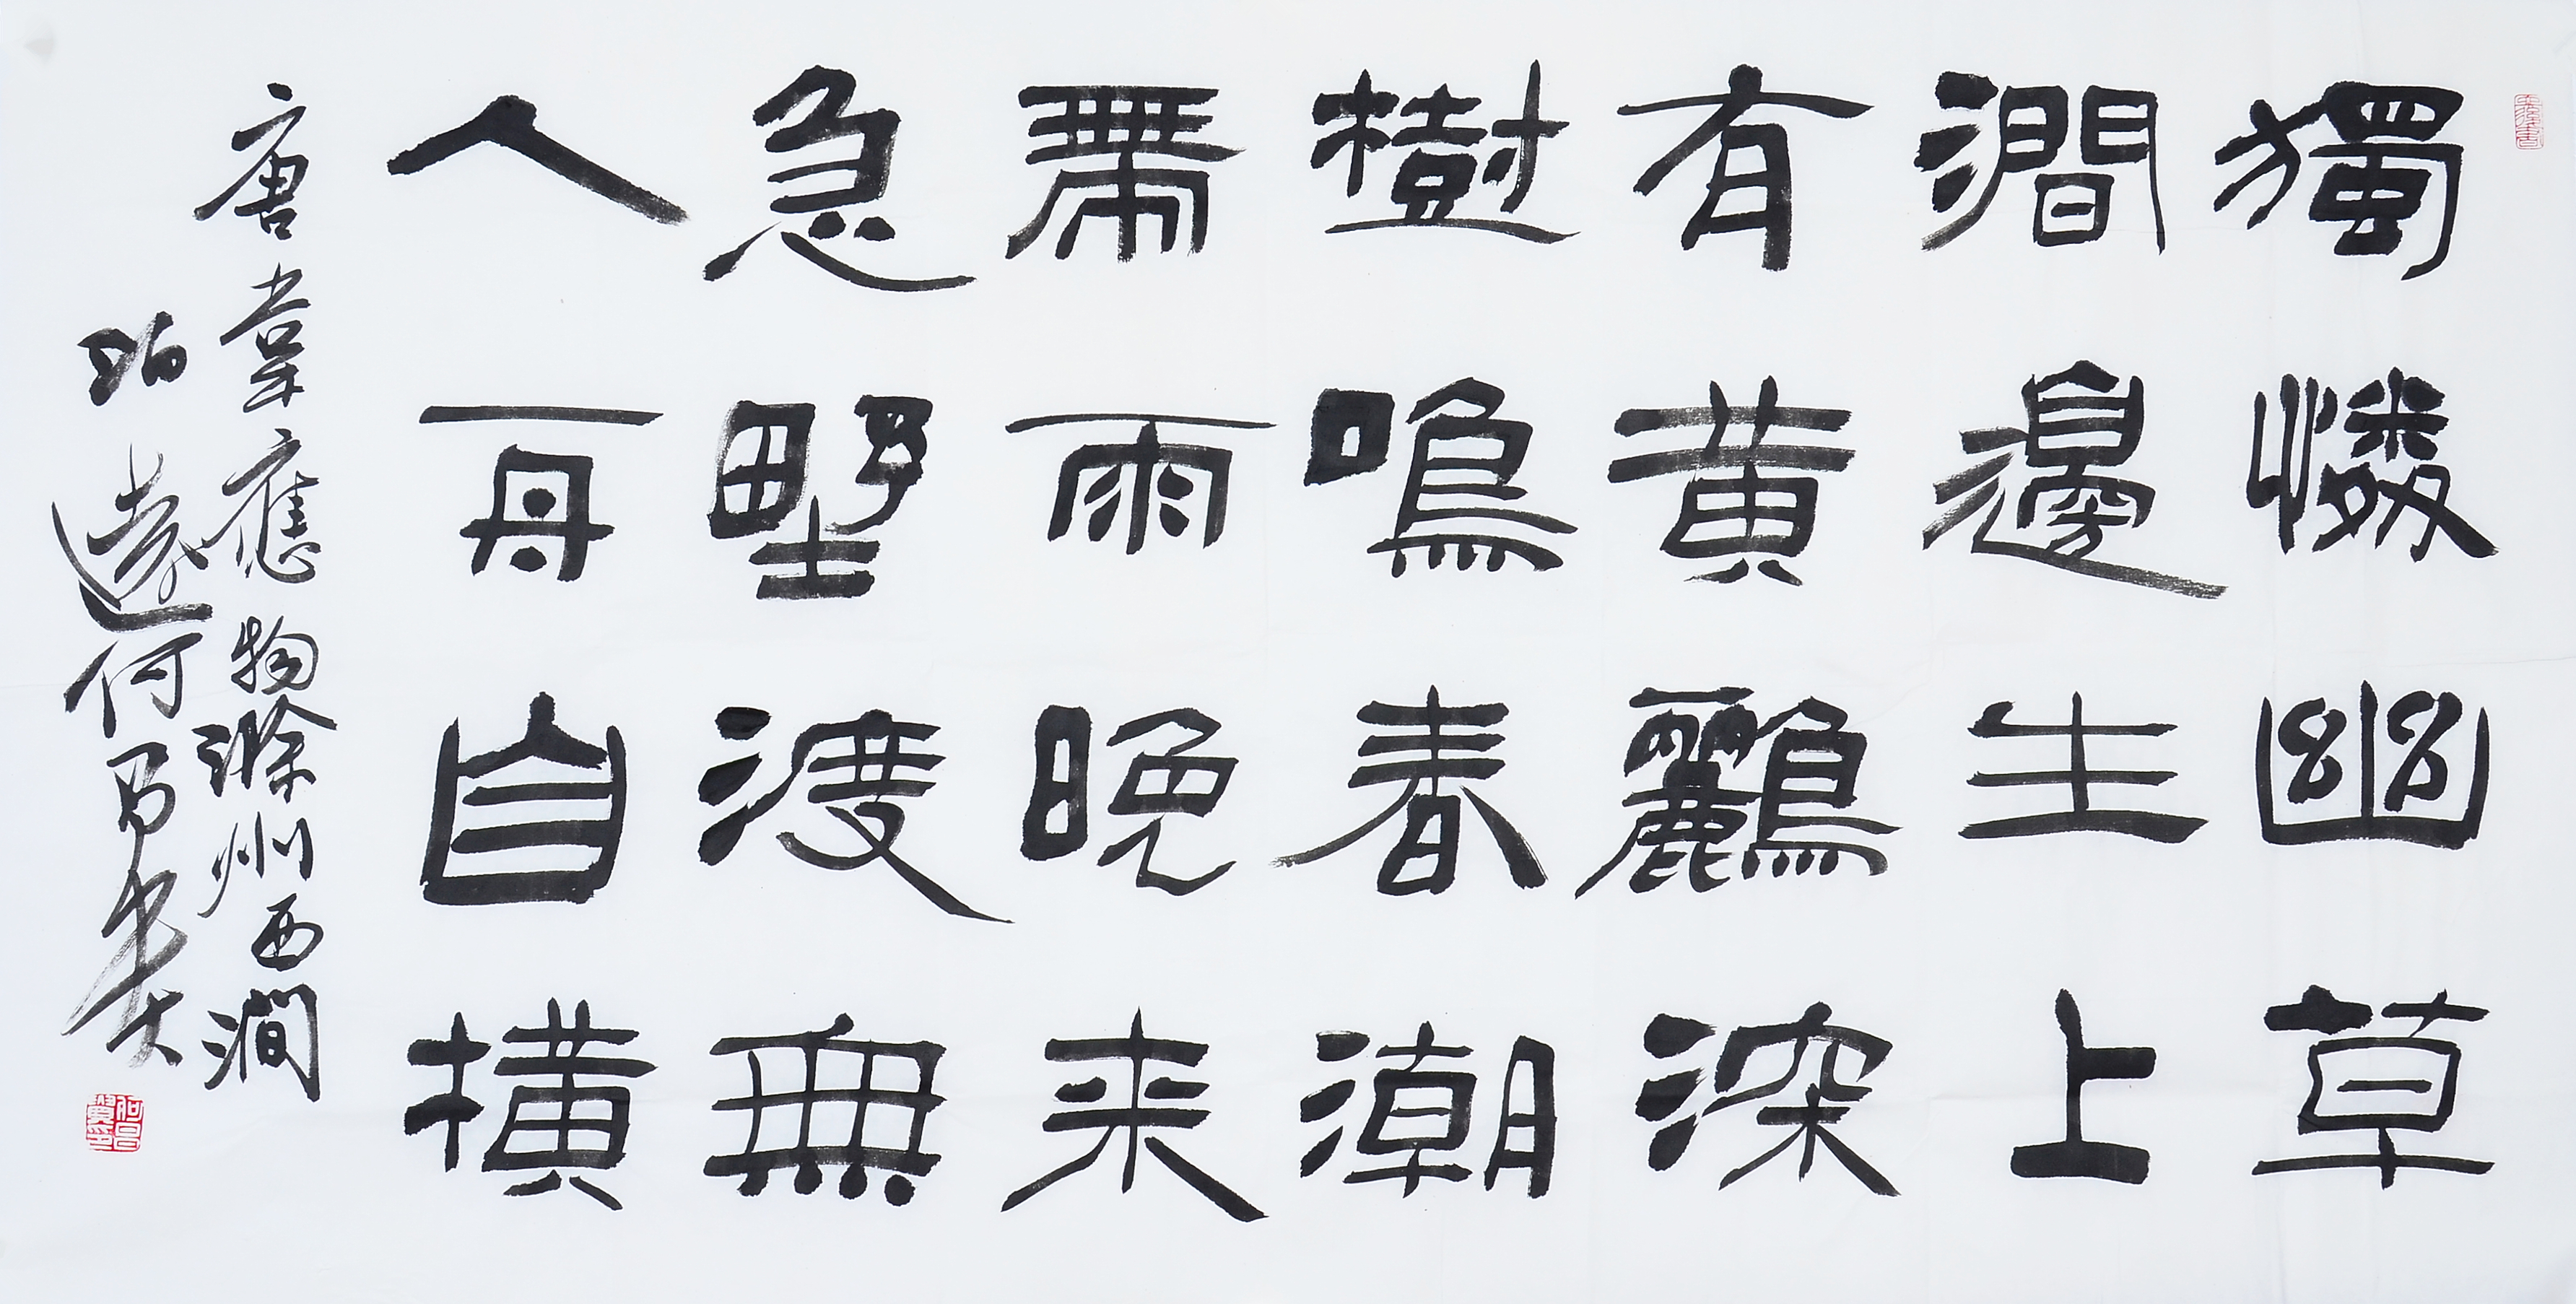 獨憐幽草
澗邊生上
有黃鸝深
樹鳴春潮
帶雨晚来
急野渡無
人舟自橫
唐韋應物滁州西澗
珀遠何昌